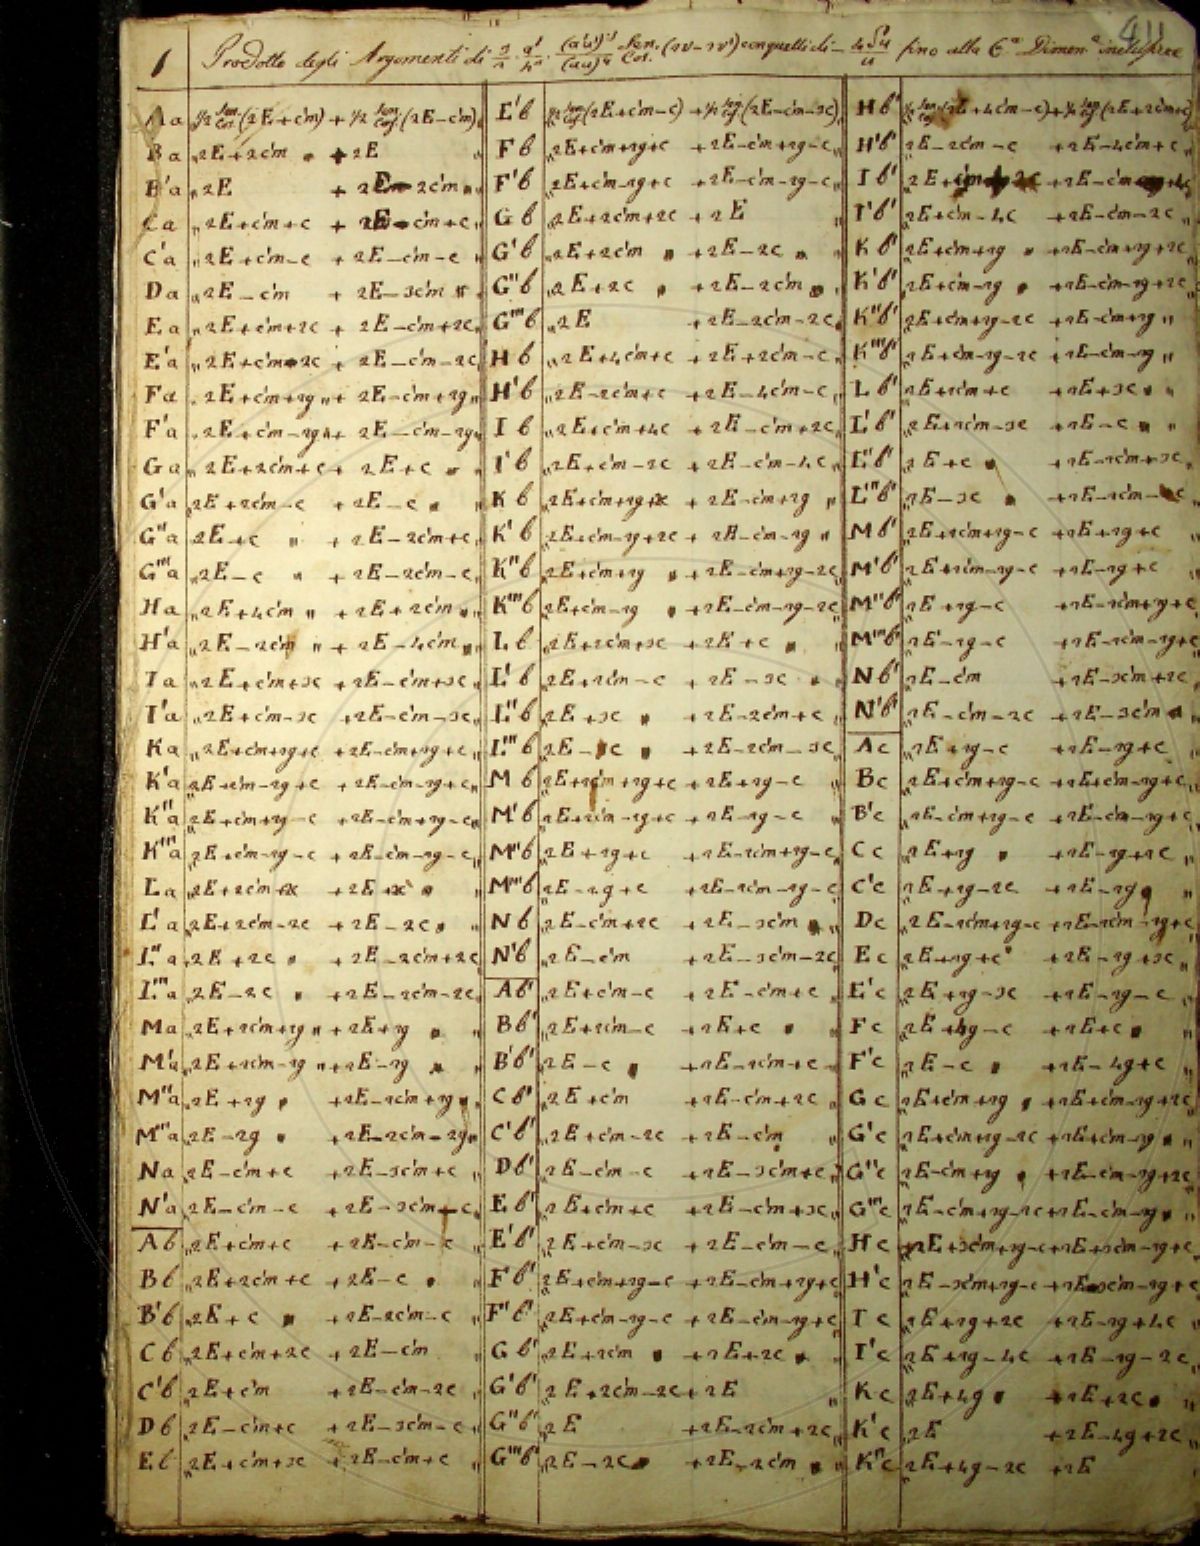 411
1 Prodotto degli Argomenti di (2v-2v') con quelli di fino alla 6ª Dimen.e inclusive
Aa ½ Sen. Cos. (2E+c'm) + ½ Sen. Cos. (2E-c'm)
Ba 2E+2c'm " +2E "
B'a 2E +2E-2c'm "
Ca 2E+c'm+c +2E-c'm+c
C'a 2E+c'm-c +2E-c'm-c
Da 2E-c'm +2E-3c'm "
Ea 2E+c'm+2c +2E-c'm+2c
E'a 2E+c'm-2c +2E-c'm-2c
Fa 2E+c'm+2g " +2E-c'm+2g "
F'a 2E+c'm-2g " +2E-c'm-2g "
Ga 2E+2c'm+c +2E+c "
G'a 2E+2c'm-c +2E-c "
G''a 2E+c " +2E-2c'm+c
G'''a 2E-c " +2E-2c'm-c
Ha 2E+4c'm " +2E+2c'm "
H'a 2E-2c'm " +2E-4c'm "
Ia 2E+c'm+3c +2E-c'm+3c
I'a 2E+c'm-3c +2E-c'm-3c
Ka 2E+c'm+2g+c +2E-c'm+2g+c
K'a 2E+c'm-2g+c +2E-c'm-2g+c
K''a 2E+c'm+2g-c +2E-c'm+2g-c
K'''a 2E+c'm-2g-c +2E-c'm-2g-c
La 2E+2c'm+2c +2E+2c "
L'a 2E+2c'm-2c +2E-2c "
L''a 2E+2c " +2E-2c'm+2c
L'''a 2E-2c " +2E-2c'm-2c
Ma 2E+2c'm+2g " +2E+2g "
M'a 2E+2c'm-2g " +2E-2g "
M''a 2E+2g " +2E-2c'm+2g "
M'''a 2E-2g " +2E-2c'm-2g "
Na 2E-c'm+c +2E-3c'm+c
N'a 2E-c'm-c +2E-3c'm-c
Ab 2E+c'm+c +2E-c'm-c
Bb 2E+2c'm+c +2E-c "
B'b 2E+c " +2E-2c'm-c
Cb 2E+c'm+2c +2E-c'm "
C'b 2E+c'm +2E-c'm-2c
Db 2E-c'm+c +2E-3c'm-c
Eb 2E+c'm+3c +2E-c'm+c
E'b ½ Sen. Cos. (2E+c'm-c) +½ Sen. Cos. (2E-c'm-3c)
Fb 2E+c'm+2g+c +2E-c'm+2g-c
F'b 2E+c'm-2g+c +2E-c'm-2g-c
Gb 2E+2c'm+2c +2E "
G'b 2E+2c'm " +2E-2c "
G''b 2E+2c " +2E-2c'm "
G'''b 2E +2E-2c'm-2c
Hb 2E+4c'm+c +2E+2c'm-c
H'b 2E-2c'm+c +2E-4c'm-c
Ib 2E+c'm+4c +2E-c'm+2c
I'b 2E+c'm-2c +2E-c'm-4c
Kb 2E+c'm+2g+2c +2E-c'm+2g "
K'b 2E+c'm-2g+2c +2E-c'm-2g "
K''b 2E+c'm+2g " +2E-c'm+2g-2c
K'''b 2E+c'm-2g " +2E-c'm-2g-2c
Lb 2E+2c'm+3c +2E+c "
L'b 2E+2c'm-c +2E-3c "
L''b 2E+3c " +2E-2c'm+c
L'''b 2E-c " +2E-2c'm-3c
Mb 2E+2c'm+2g+c +2E+2g-c
M'b 2E+2c'm-2g+c +2E-2g-c
M''b 2E+2g+c +2E-2c'm+2g-c
M'''b 2E-2g+c +2E-2c'm-2g-c
Nb 2E-c'm+2c +2E-3c'm "
N'b 2E-c'm +2E-3c'm-2c
Ab' 2E+c'm-c +2E-c'm+c
Bb' 2E+2c'm-c +2E+c "
B'b' 2E-c " +2E-2c'm+c
Cb' 2E+c'm +2E-c'm+2c
C'b' 2E+c'm-2c +2E-c'm "
Db' 2E-c'm-c +2E-3c'm+c
Eb' 2E+c'm+c +2E-c'm+3c
E'b' 2E+c'm-3c +2E-c'm-c
Fb' 2E+c'm+2g-c +2E-c'm+2g+c
F'b' 2E+c'm-2g-c +2E-c'm-2g+c
Gb' 2E+2c'm " +2E+2c "
G'b' 2E+2c'm-2c +2E "
G''b' 2E +2E-2c'm+2c
G'''b' 2E-2c " +2E-2c'm "
Hb' ½ Sen. Cos. (2E+4c'm-c) +½ Sen. Cos. (2E+2c'm+c)
H'b' 2E-2c'm-c +2E-4c'm+c
Ib' 2E+c'm+2c +2E-c'm
I'b' 2E+c'm-4c +2E-c'm-2c
Kb' 2E+c'm+2g " +2E-c'm+2g+2c
K'b' 2E+c'm-2g " +2E-c'm-2g+2c
K''b' 2E+c'm+2g-2c +2E-c'm+2g "
K'''b' 2E+c'm-2g-2c +2E-c'm-2g "
Lb' 2E+2c'm+c +2E+3c "
L'b' 2E+2c'm-3c +2E-c "
L''b' 2E+c " +2E-2c'm+3c
L'''b' 2E-3c " +2E-2c'm-c
Mb' 2E+2c'm+2g-c +2E+2g+c
M'b' 2E+2c'm-2g-c +2E-2g+c
M''b' 2E+2g-c +2E-2c'm+2g+c
M'''b' 2E-2g-c +2E-2c'm-2g+c
Nb' 2E-c'm +2E-3c'm+2c
N'b' 2E-c'm-2c +2E-3c'm "
Ac 2E+2g-c +2E-2g+c
Bc 2E+c'm+2g-c +2E+c'm-2g+c
B'c 2E-c'm+2g-c +2E-c'm-2g+c
Cc 2E+2g " +2E-2g+2c
C'c 2E+2g-2c +2E-2g "
Dc 2E-2c'm+2g-c +2E-2c'm-2g+c
Ec 2E+2g+c +2E-2g+3c
E'c 2E+2g-3c +2E-2g-c
Fc 2E+4g-c +2E+c "
F'c 2E-c " +2E-4g+c
Gc 2E+c'm+2g " +2E+c'm-2g+2c
G'c 2E+c'm+2g-2c +2E+c'm-2g "
G''c 2E-c'm+2g " +2E-c'm-2g+2c
G'''c 2E-c'm+2g-2c +2E-c'm-2g "
Hc 2E+3c'm+2g-c +2E+3c'm-2g+c
H'c 2E-3c'm+2g-c +2E-3c'm-2g+c
Ic 2E+2g+2c +2E-2g+4c
I'c 2E+2g-4c +2E-2g-2c
Kc 2E+4g " +2E+2c "
K'c 2E +2E-4g+2c
K''c 2E+4g-2c +2E